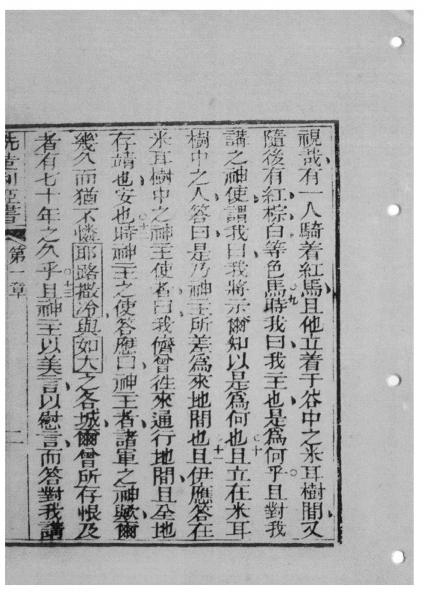 視哉有一人騎着紅馬且他立着于谷中之米耳樹間又
隨後有紅棕白等色馬時我曰我主也是為何乎且對我
九
講之神使謂我曰我將示爾知以是為何也且立在米耳
十
樹中之人答曰是乃神主所差為來地間也且伊應答在
十一
米耳樹中之神主使者曰我儕曾徃來通行地間且全地
存靖也安也時神主之使答應曰神主者諸軍之神歟爾
十二
幾久而猶不憐耶路撒冷與如大之各城爾曾所存恨及
者有七十年之久乎且神主以美言以慰言而答對我講
十三
第一章